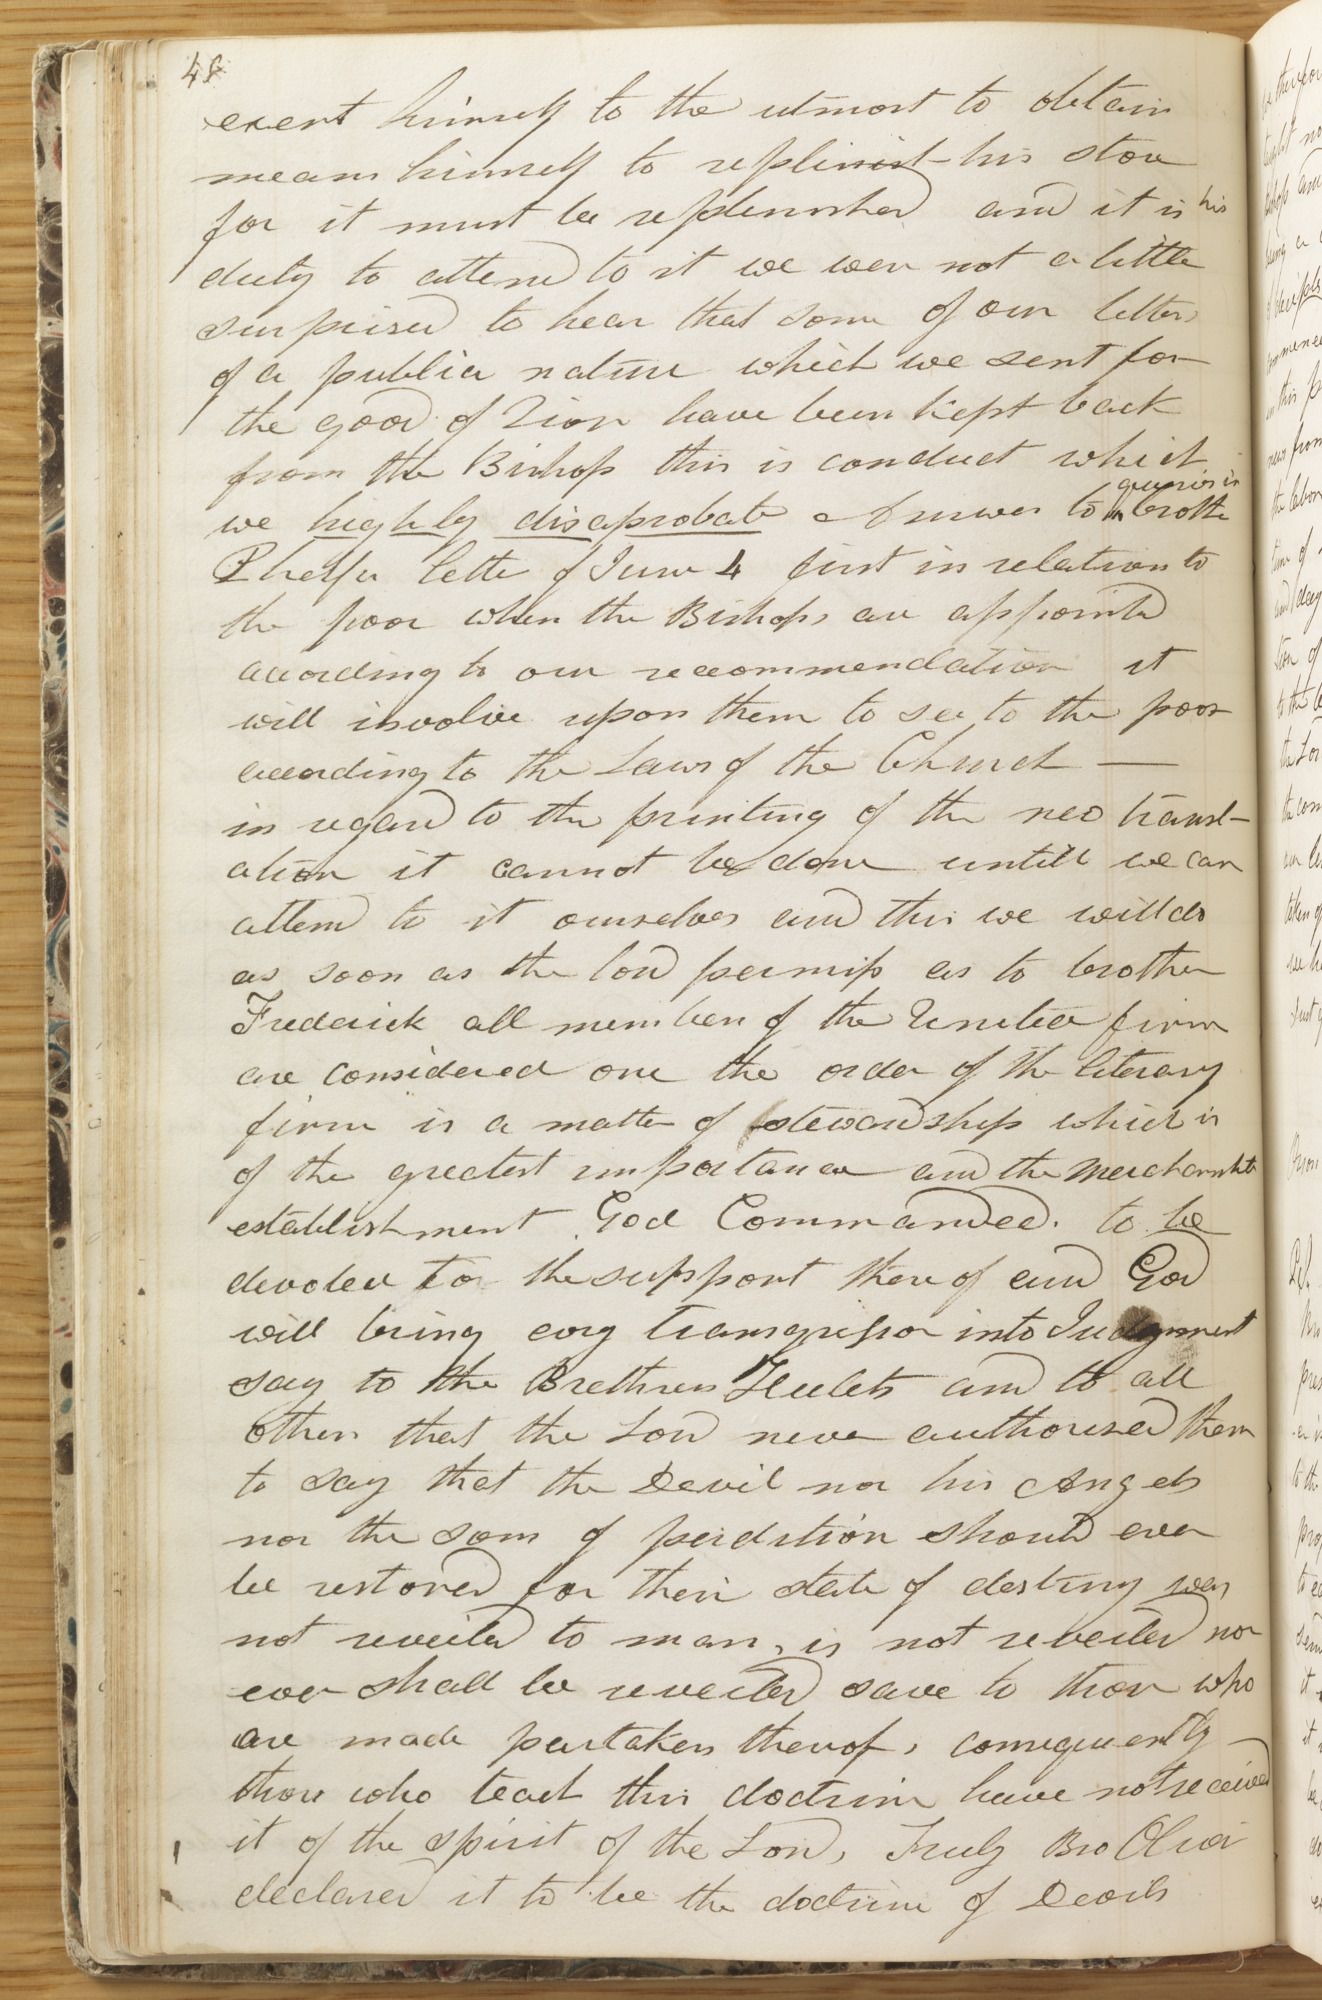 48
exert himself to the utmost to obtain
means himself to replinist his store
for it must be replenished and it is his
duty to attend to it we were not a little
surprised to hear that some of our letters
of a public nature which we sent for
the good of Zion have been kept back
from the Bishop this is conduct which
we highly disaprobate Answer to queries in brothe
Phelps lette of June 4 first in relation to
the poor when the Bishops are appointed
according to our recommendation it
will involve upon them to see to the poor
according to the Laws of the Church —
in regard to the printing of the new transl-
ation it cannot be done untill we can
attend to it ourselves and this we will do
as soon as the lord permiss as to brother
Frederick all members of the United firm
are considered one the order of the literary
firm is a matter of stewardship which is
of the greatest importance and the Merchantile
establishment God Commanded. to be
devoted to the support thereof and God
will bring evry transgressor into Judgment
say to the Brethren Hulets and to all
others that the Lord never authorised them
to say that the Devil nor his Angels
nor the sons of perdition should ever
be restored for their state of destiny was
not reveiled to man, is not reveiled nor
ever shall be reveiled save to those who
are made partakers thereof, consequently
those who teach this doctrine have not received
it of the spirit of the Lord, Truly Bro Oliver
declared it to be the doctrine of Devils